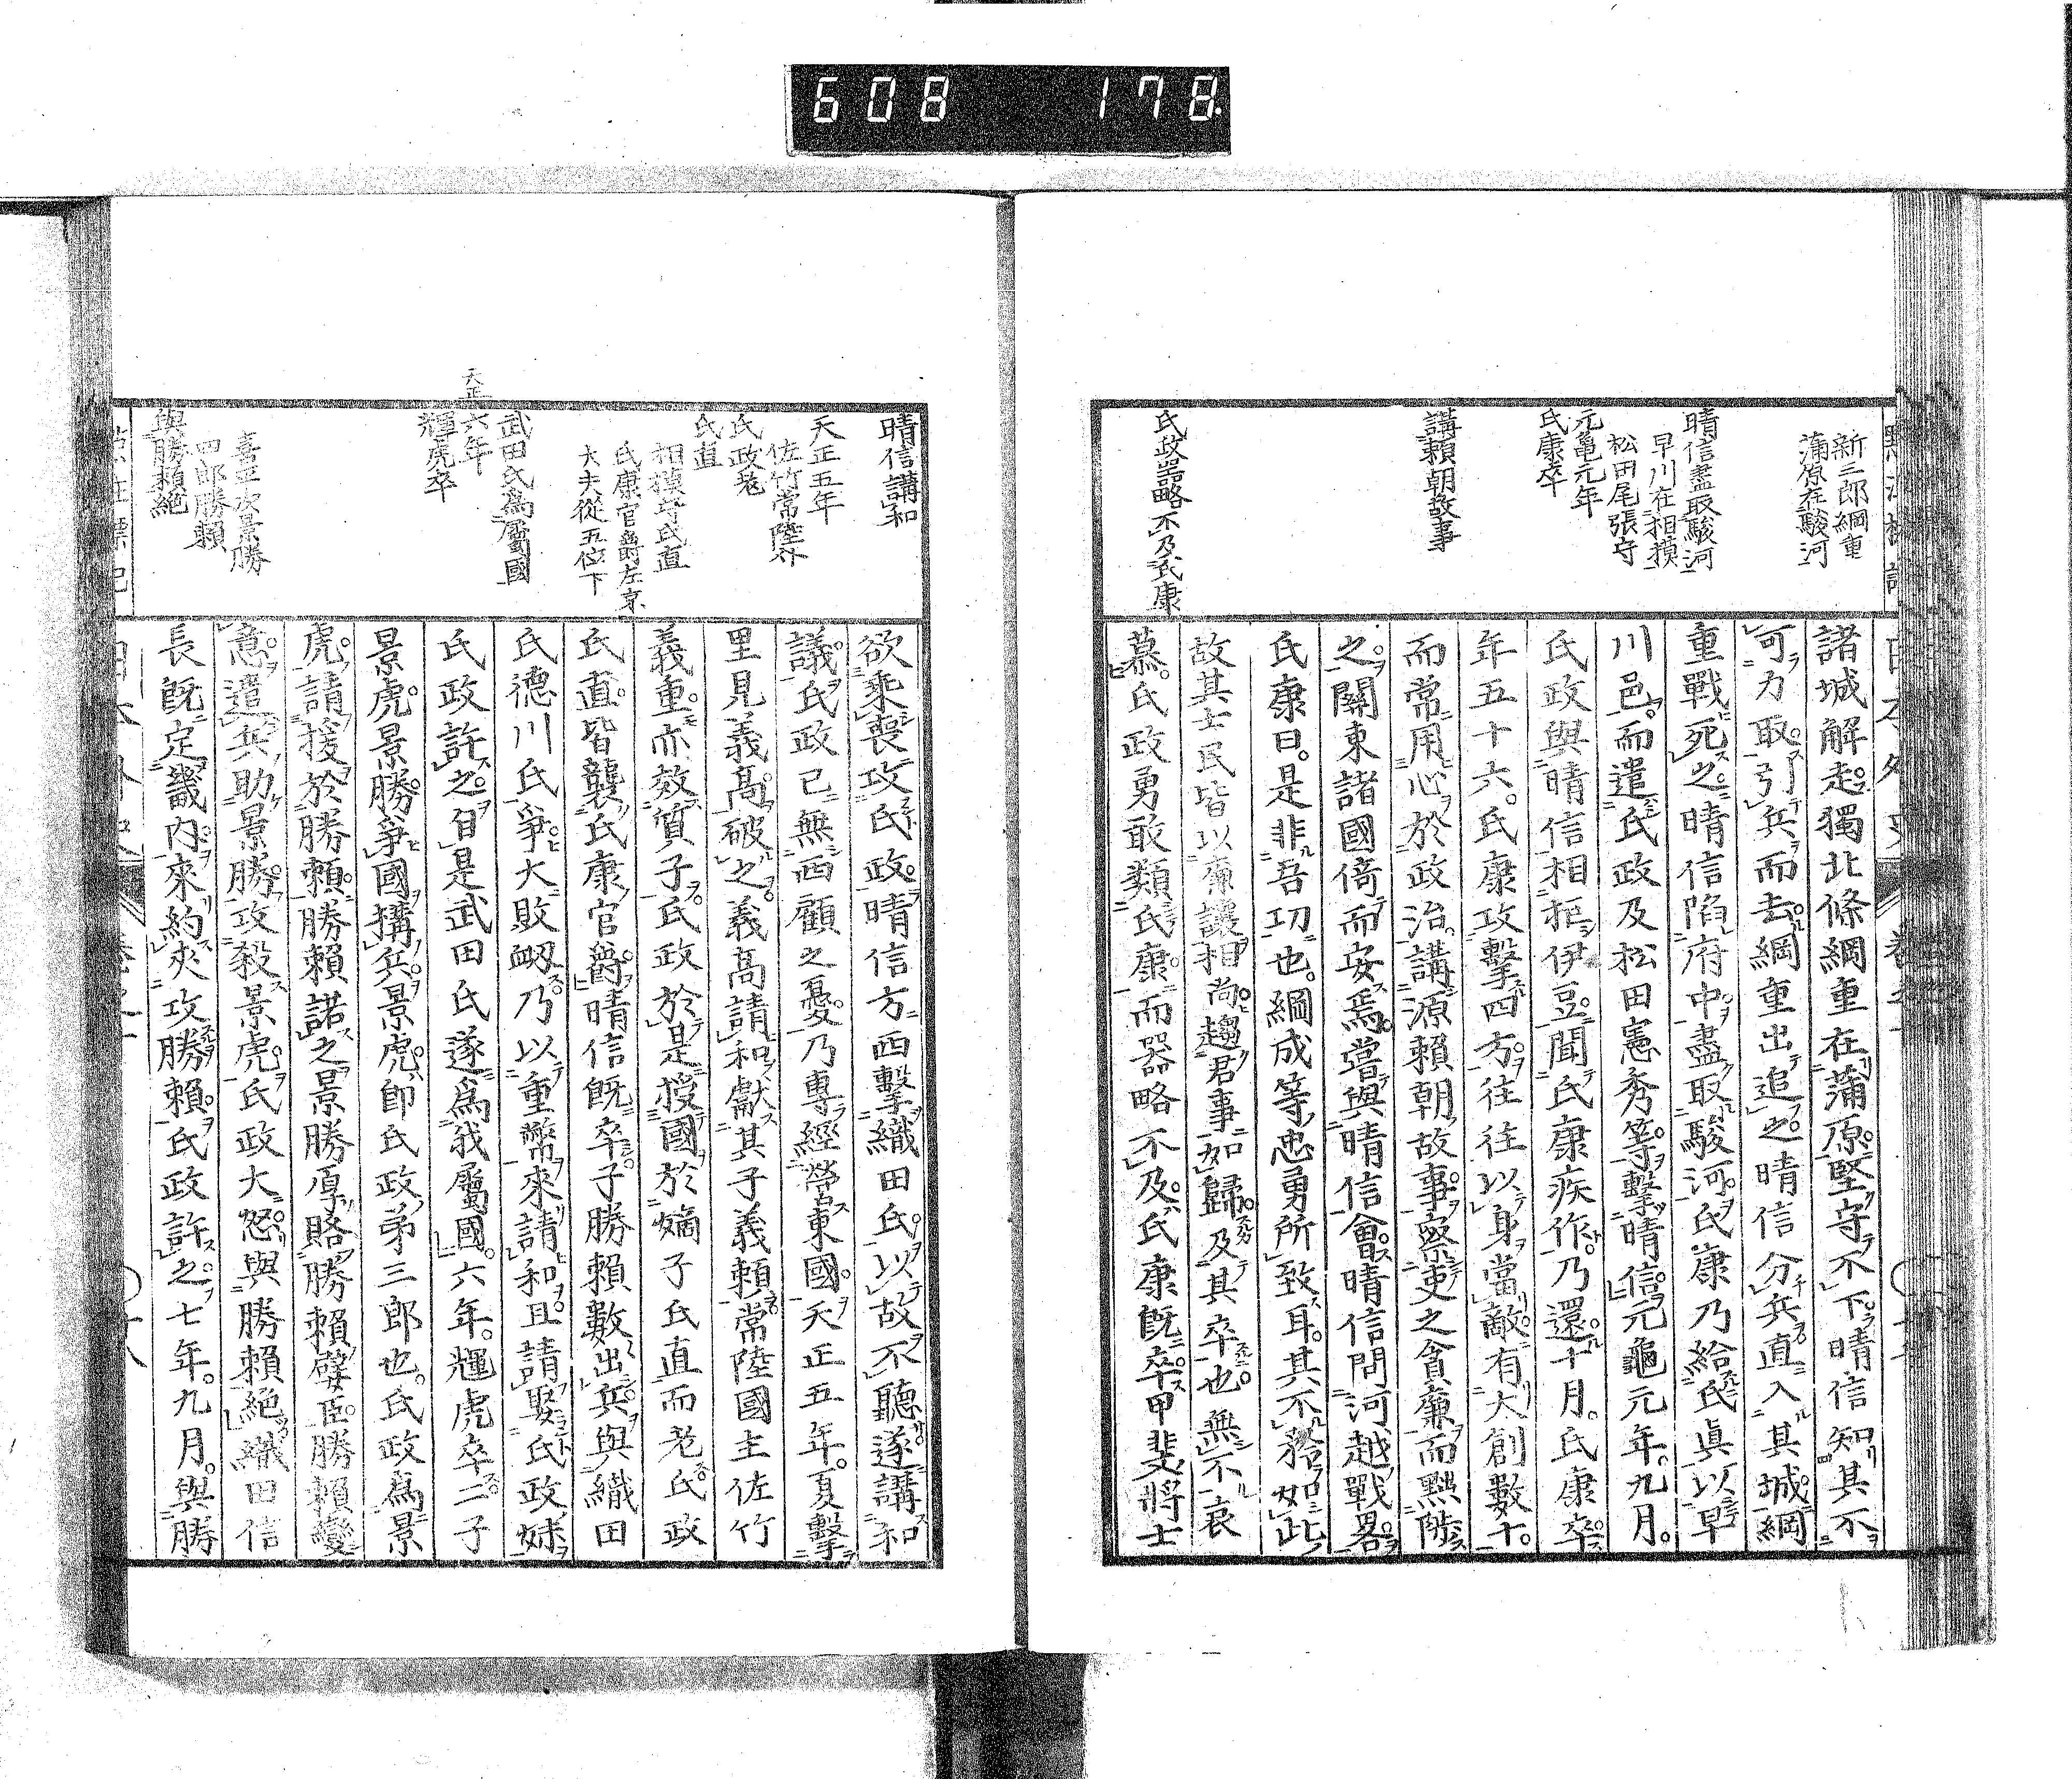 608 178
新三郎綱重
蒲原在駿河
晴信盡取駿河
早川在相摸
松田尾張守
元亀元年
氏康卒
講賴朝故事
氏政器略不及氏康
諸城解走獨北條綱重在蒲原堅守不下晴信知其不
可力取引兵而去綱重出追之晴信分兵直入其城綱
重戰死之晴信陷府中盡取駿河氏康乃給氏眞以早
川邑而遣氏政及松田憲秀等擊晴信元龜元年九月
氏政與晴信相拒伊豆聞氏康疾作乃還十月氏康卒
年五十六氏康攻擊四方往往以身當敵有大創數十
而常用心於政治講源賴朝故事察吏之貪廉而黜陟
之關東諸國倚而安焉嘗與晴信會晴信問河越戰畧
氏康曰是非吾功也綱成等忠勇所致耳其不務如此
故其士民皆以廉讓相尚趨君事如歸及其卒也無不哀
慕氏政勇敢類氏康而器略不及氏康既卒甲斐將士
晴信講和
天正五年
佐竹常陸介
氏政老
氏直
相摸守氏直
氏康官爵左京
大夫從五位下
武田氏爲屬國
天正六年
輝虎卒
喜平次景勝
四郎勝賴
與勝賴絕
欲乘喪攻氏政晴信方西擊織田氏以故不聽遂講和
議氏政已無西顧之憂乃專經營東國天正五年夏擊
里見義高破之義高請和獻其子義賴常陸國主佐竹
義重亦效質子氏政於是授國於嫡子氏直而老氏政
氏直皆襲氏康官爵晴信既卒子勝賴數出兵與織田
氏德川氏爭大敗衂乃以重幣來請和且請娶氏政妹
氏政許之自是武田氏遂爲我屬國六年輝虎卒二子
景虎景勝爭國搆兵景虎卽氏政弟三郎也氏政爲景
虎請援於勝賴勝賴諾之景勝厚賂勝賴嬖臣勝賴變
意遣兵助景勝攻殺景虎氏政大怒與勝賴絕織田信
長既定畿内來約夾攻勝賴氏政許之七年九月與勝